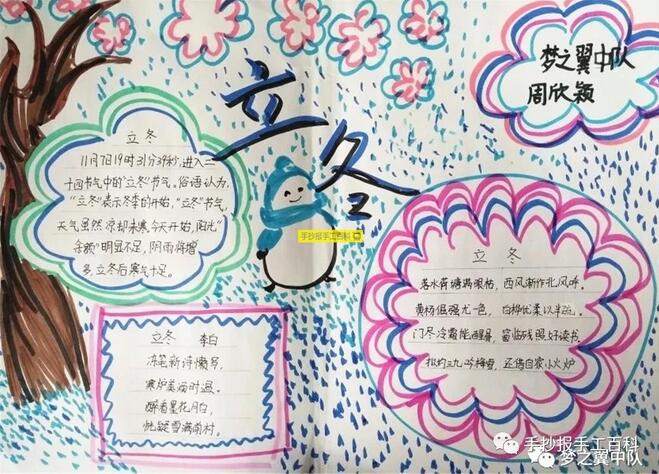 立冬
梦之翼中队
周欣颖
立冬
11月7日19时31分39秒,进入二
十四节气中的“立冬”节气。俗语认为,
“立冬”表示冬季的开始,“立冬”节气,
天气虽然凉却未寒,今天开始,阳光“
余额”明显不足,阴雨将增
多,立冬后寒气十足。
手抄报手工百科
立冬 李白
冻笔新诗懒写,
寒炉美酒时温。
醉看墨花月白,
恍疑雪满前村。
立冬
落水荷塘满眼枯,西风渐作北风呼。
黄杨倔强尤一色,白桦优柔以半疏。
门尽冷霜能醒骨,窗临残照好读书。
拟约三九吟梅雪,还借自家小火炉
手抄报手工百科
梦之翼中队